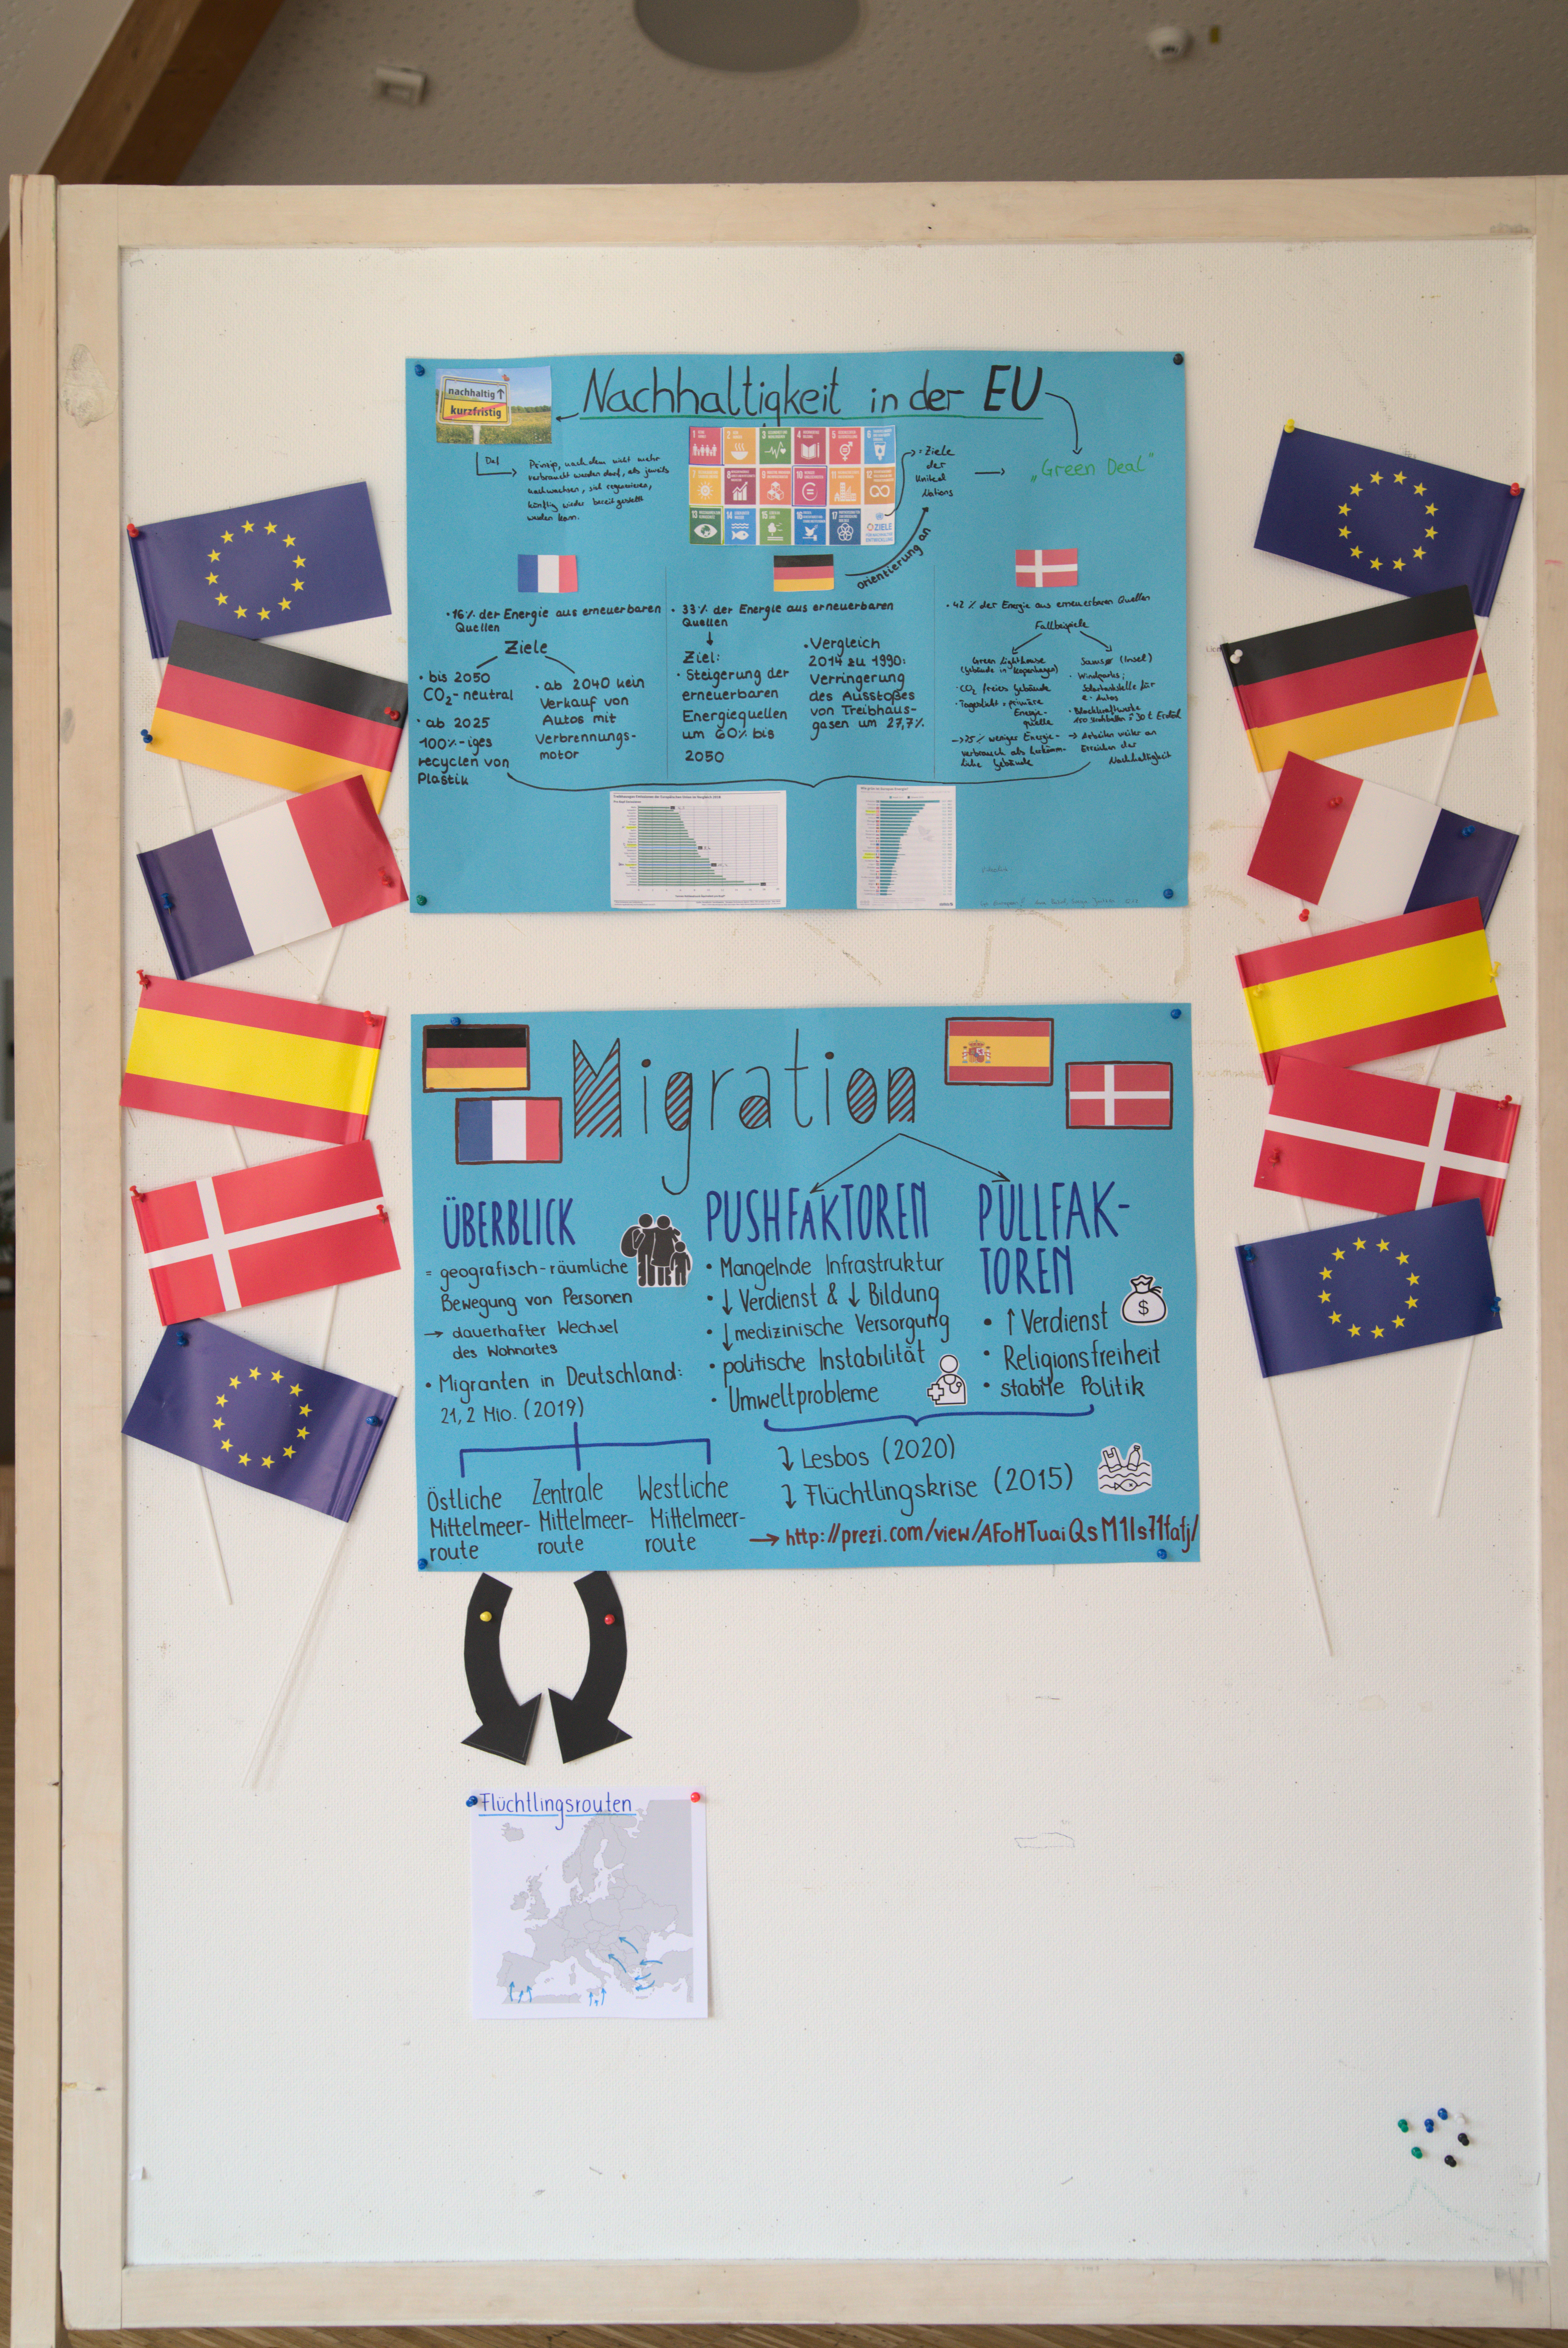 Nachhaltigkeit in der EU
nachhaltig
kurzfristig
Def
Prinzip, nach dem nicht mehr
verbraucht werden darf, als jeweils
nachwachsen, sich regenerieren,
künftig wieder bereitgestellt
werden kann.
= Ziele
der
United
Nations
„Green Deal"
ZIELE
orientierung an
• 16% der Energie aus erneuerbaren
Quellen
Ziele
• bis 2050
CO2-neutral
• ab 2025
100%-iges
recyclen von
Plastik
• ab 2040 kein
Verkauf von
Autos mit
Verbrennungs-
motor
• 33% der Energie aus erneuerbaren
Quellen
Ziel:
• Steigerung der
erneuerbaren
Energiequellen
um 60% bis
2050
• Vergleich
2014 zu 1990:
Verringerung
des Ausstoßes
von Treibhaus-
gasen um 27,7%
• 42% der Energie aus erneuerbaren Quellen
Fallbeispiele
Green Lighthouse
(Gebäude in Kopenhagen)
• CO2 freies Gebäude
• Tageslicht = primäre
Energie-
quelle
→ 75% weniger Energie-
verbrauch als herkömm-
liche Gebäude
(Insel)
• Windparks;
für
e-Autos
• Blockkraftwerke
→ Arbeiten weiter an
Erreichen der
Nachhaltigkeit
Migration
ÜBERBLICK
= geografisch-räumliche
Bewegung von Personen
→ dauerhafter Wechsel
des Wohnortes
• Migranten in Deutschland:
21,2 Mio. (2019)
Östliche
Mittelmeer-
route
Zentrale
Mittelmeer-
route
Westliche
Mittelmeer-
route
PUSHFAKTOREN
• Mangelnde Infrastruktur
• ↓ Verdienst & ↓ Bildung
• ↓ medizinische Versorgung
• politische Instabilität
• Umweltprobleme
PULLFAK-
TOREN
• ↑ Verdienst
• Religionsfreiheit
• stabile Politik
$
↴ Lesbos (2020)
↴ Flüchtlingskrise (2015)
→ http://prezi.com/view/AFoHTuaiQsM1ls71fafj/
Flüchtlingsrouten